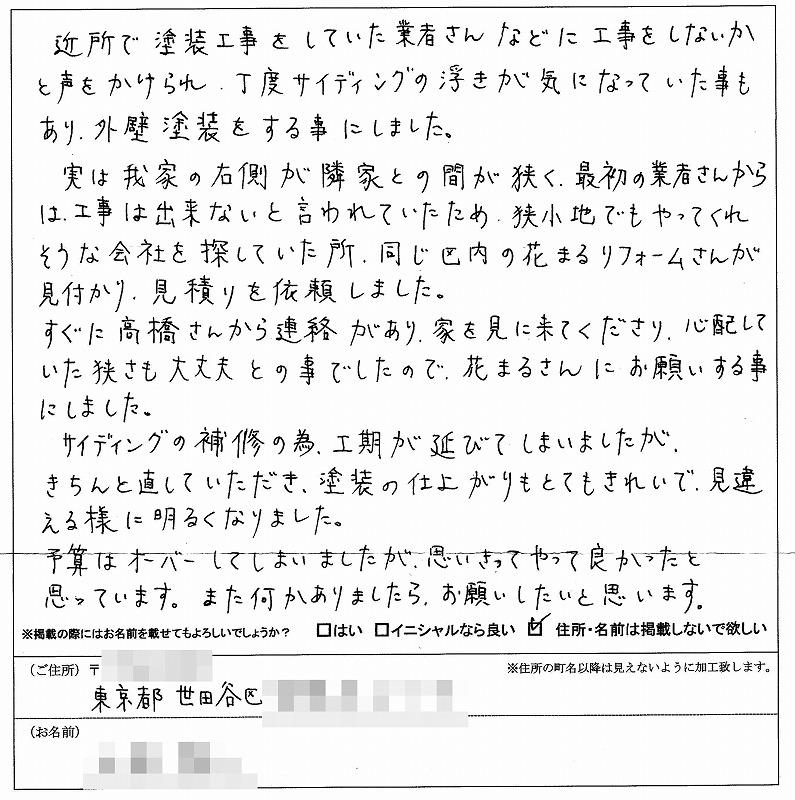 近所で塗装工事をしていた業者さんなどに工事をしないか
と声をかけられ、丁度サイディングの浮きが気になっていた事も
あり、外壁塗装をする事にしました。
実は我家の右側が隣家との間が狭く、最初の業者さんから
は、工事は出来ないと言われていたため、狭小地でもやってくれ
そうな会社を探していた所、同じ区内の花まるリフォームさんが
見付かり、見積りを依頼しました。
すぐに高橋さんから連絡があり、家を見に来てくださり、心配して
いた狭さも大丈夫との事でしたので、花まるさんにお願いする事
にしました。
サイディングの補修の為、工期が延びてしまいましたが、
きちんと直していただき、塗装の仕上がりもとてもきれいで、見違
える様に明るくなりました。
予算はオーバーしてしまいましたが、思いきってやって良かったと
思っています。また何かありましたら、お願いしたいと思います。
※掲載の際にはお名前を載せてもよろしいでしょうか? □はい □イニシャルなら良い ☑ 住所・名前は掲載しないで欲しい
(ご住所)〒 ※住所の町名以降は見えないように加工致します。
東京都 世田谷区
(お名前)